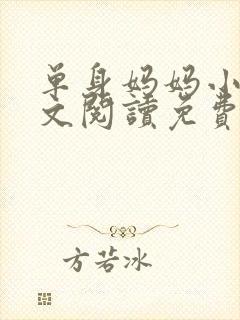 单身妈妈小
文阅讀免費
方若冰